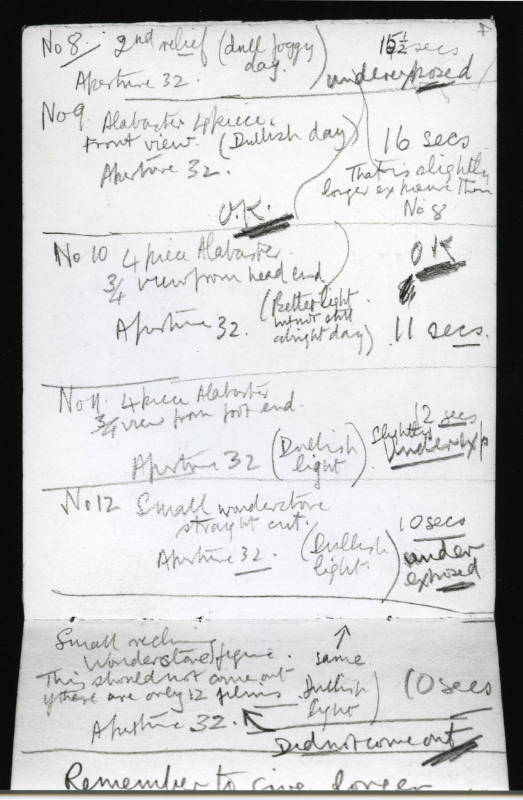 No 8. 2nd relief (dull foggy day.) 15½ secs
Aperture 32. underexposed
No 9 Alabaster 4 piece.
Front view. (Dullish day) 16 secs
Aperture 32. That is slightly
longer exposure than
No 8
O.K.
No 10 4 piece Alabaster. OK
3/4 view from head end
Aperture 32. (Better light.
but not still
a bright day) 11 secs.
No 11. 4 piece Alabaster
3/4 view from foot end. 12 secs
Aperture 32 (Dullish light) Slightly underexp
No 12 Small wonderstone
straight cut. 10 secs
Aperture 32. (Dullish light.) under
exposed
Small reclin
Wonderstone figure. same
This should not come out
if there are only 12 films Dullish light) 10 secs
Aperture 32.
Did not come out
Remember to give longer